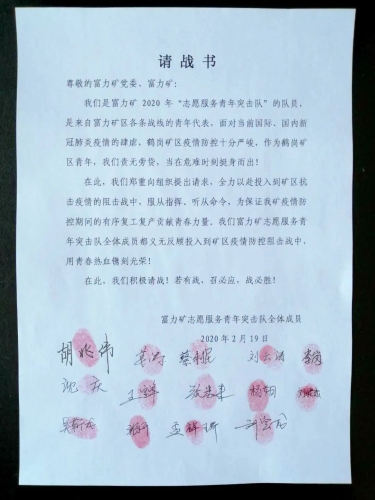 请战书
尊敬的富力矿党委、富力矿:
我们是富力矿 2020 年“志愿服务青年突击队”的队员,
是来自富力矿区各条战线的青年代表,面对当前国际、国内新
冠肺炎疫情的肆虐,鹤岗矿区疫情防控十分严峻,作为鹤岗矿
区青年,我们责无旁贷,当在危难时刻挺身而出!
在此,我们郑重向组织提出请求,全力以赴投入到矿区抗
击疫情的阻击战中,服从指挥、听从命令,为保证我矿疫情防
控期间的有序复工复产贡献青春力量。我们富力矿志愿服务青
年突击队全体成员都义无反顾投入到矿区疫情防控阻击战中,
用青春热血镌刻光荣!
在此,我们积极请战!若有战,召必应,战必胜!
富力矿志愿服务青年突击队全体成员
2020 年 2 月 19 日
胡兆伟
沈庆 杨朝
孟祥瑞